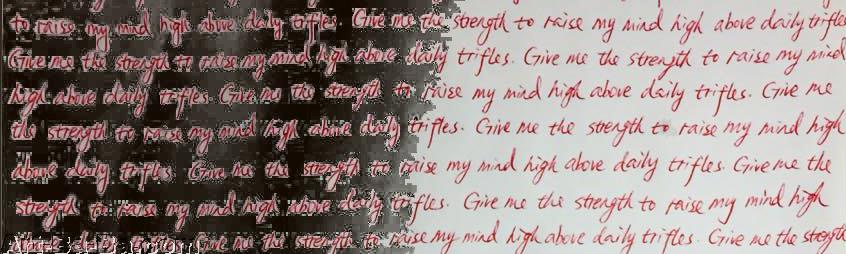 to raise my mind high above daily trifles. Give me the strength to raise my mind high above daily trifles
Give me the strength to raise my mind high above daily trifles. Give me the strength to raise my mind
high above daily trifles. Give me the strength to raise my mind high above daily trifles. Give me
the strength to raise my mind high above daily trifles. Give me the strength to raise my mind high
above daily trifles. Give me the strength to raise my mind high above daily trifles. Give me the
strength to raise my mind high above daily trifles. Give me the strength to raise my mind high
above daily trifles. Give me the strength to raise my mind high above daily trifles. Give me the strength